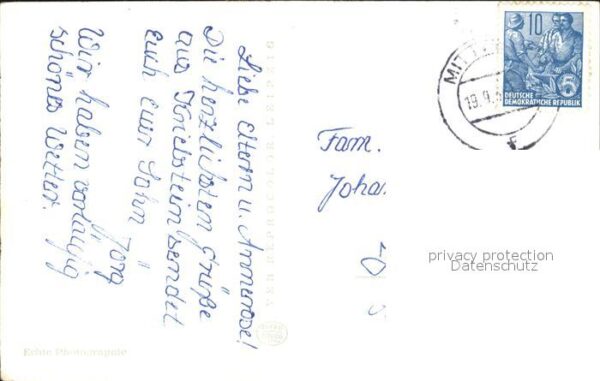 Liebe Eltern u. Annerose!
Die herzlichsten Grüße
aus Kriebstein sendet
euch euer Sohn
Jörg
Wir haben vorläufig
schönes Wetter.
Fam.
Joha.
10
5
DEUTSCHE
DEMOKRATISCHE REPUBLIK
MITTWE
19.9.
f
privacy protection
Datenschutz
VEB REPROCOLOR LEIPZIG
Echte Photographie